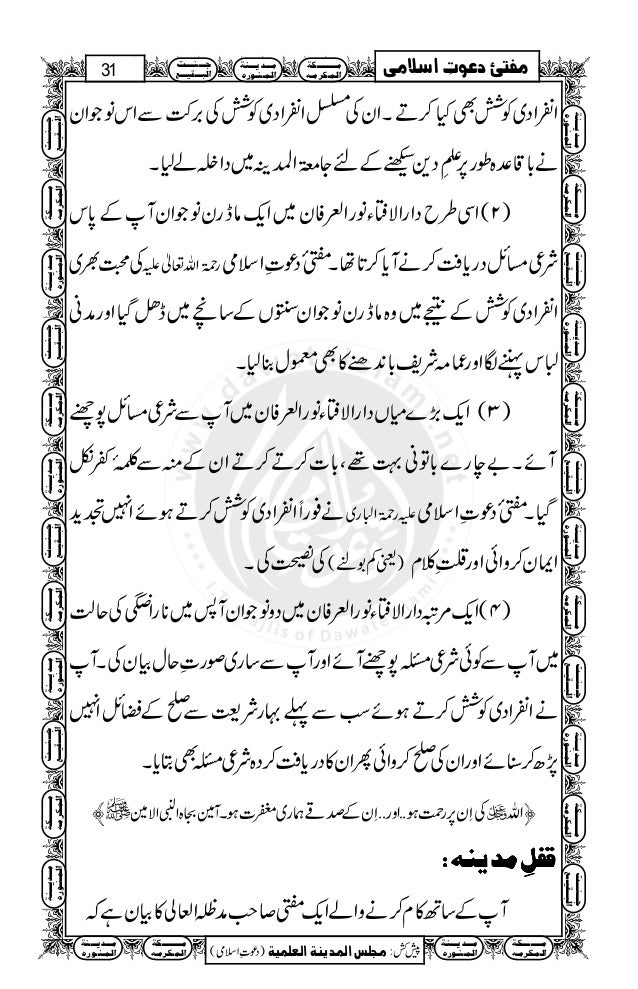 31
جنت البقیع
مدینۃ المنورہ
مکۃ المکرمہ
مفتئ دعوتِ اسلامی
انفرادی کوشش بھی کیا کرتے ۔ ان کی مسلسل انفرادی کوشش کی برکت سے اس نوجوان
نے باقاعدہ طور پر علمِ دین سیکھنے کے لئے جامعۃ المدینہ میں داخلہ لے لیا ۔
(۲) اسی طرح دارالافتاء نورالعرفان میں ایک ماڈرن نوجوان آپ کے پاس
شرعی مسائل دریافت کرنے آیا کرتا تھا۔ مفتئ دعوتِ اسلامی رحمۃ اللہ تعالٰی علیہ کی محبت بھری
انفرادی کوشش کے نتیجے میں وہ ماڈرن نوجوان سنتوں کے سانچے میں ڈھل گیا اور مدنی
لباس پہننے لگا اور عمامہ شریف باندھنے کا بھی معمول بنا لیا۔
(۳) ایک بڑے میاں دارالافتاء نورالعرفان میں آپ سے شرعی مسائل پوچھنے
آئے ۔ بے چارے باتونی بہت تھے ، بات کرتے کرتے ان کے منہ سے کلمۂ کفر نکل
گیا ۔ مفتئ دعوتِ اسلامی علیہ رحمۃ الباری نے فوراً انفرادی کوشش کرتے ہوئے انہیں تجدید
ایمان کروائی اور قلتِ کلام (یعنی کم بولنے) کی نصیحت کی ۔
(۴) ایک مرتبہ دارالافتاء نورالعرفان میں دو نوجوان آپس میں ناراضگی کی حالت
میں آپ سے کوئی شرعی مسئلہ پوچھنے آئے اور آپ سے ساری صورتِ حال بیان کی ۔ آپ
نے انفرادی کوشش کرتے ہوئے سب سے پہلے بہارِ شریعت سے صلح کے فضائل انہیں
پڑھ کر سنائے اور ان کی صلح کروائی پھر ان کا دریافت کردہ شرعی مسئلہ بھی بتایا۔
﴿اللہ عزوجل کی اِن پر رحمت ہو..اور..اِن کے صدقے ہماری مغفرت ہو۔ آمین بجاہ النبی الامین ﷺ﴾
قفلِ مدینہ :
آپ کے ساتھ کام کرنے والے ایک مفتی صاحب مدظلہ العالی کا بیان ہے کہ
پیش کش: مجلس المدینۃ العلمیۃ (دعوتِ اسلامی)